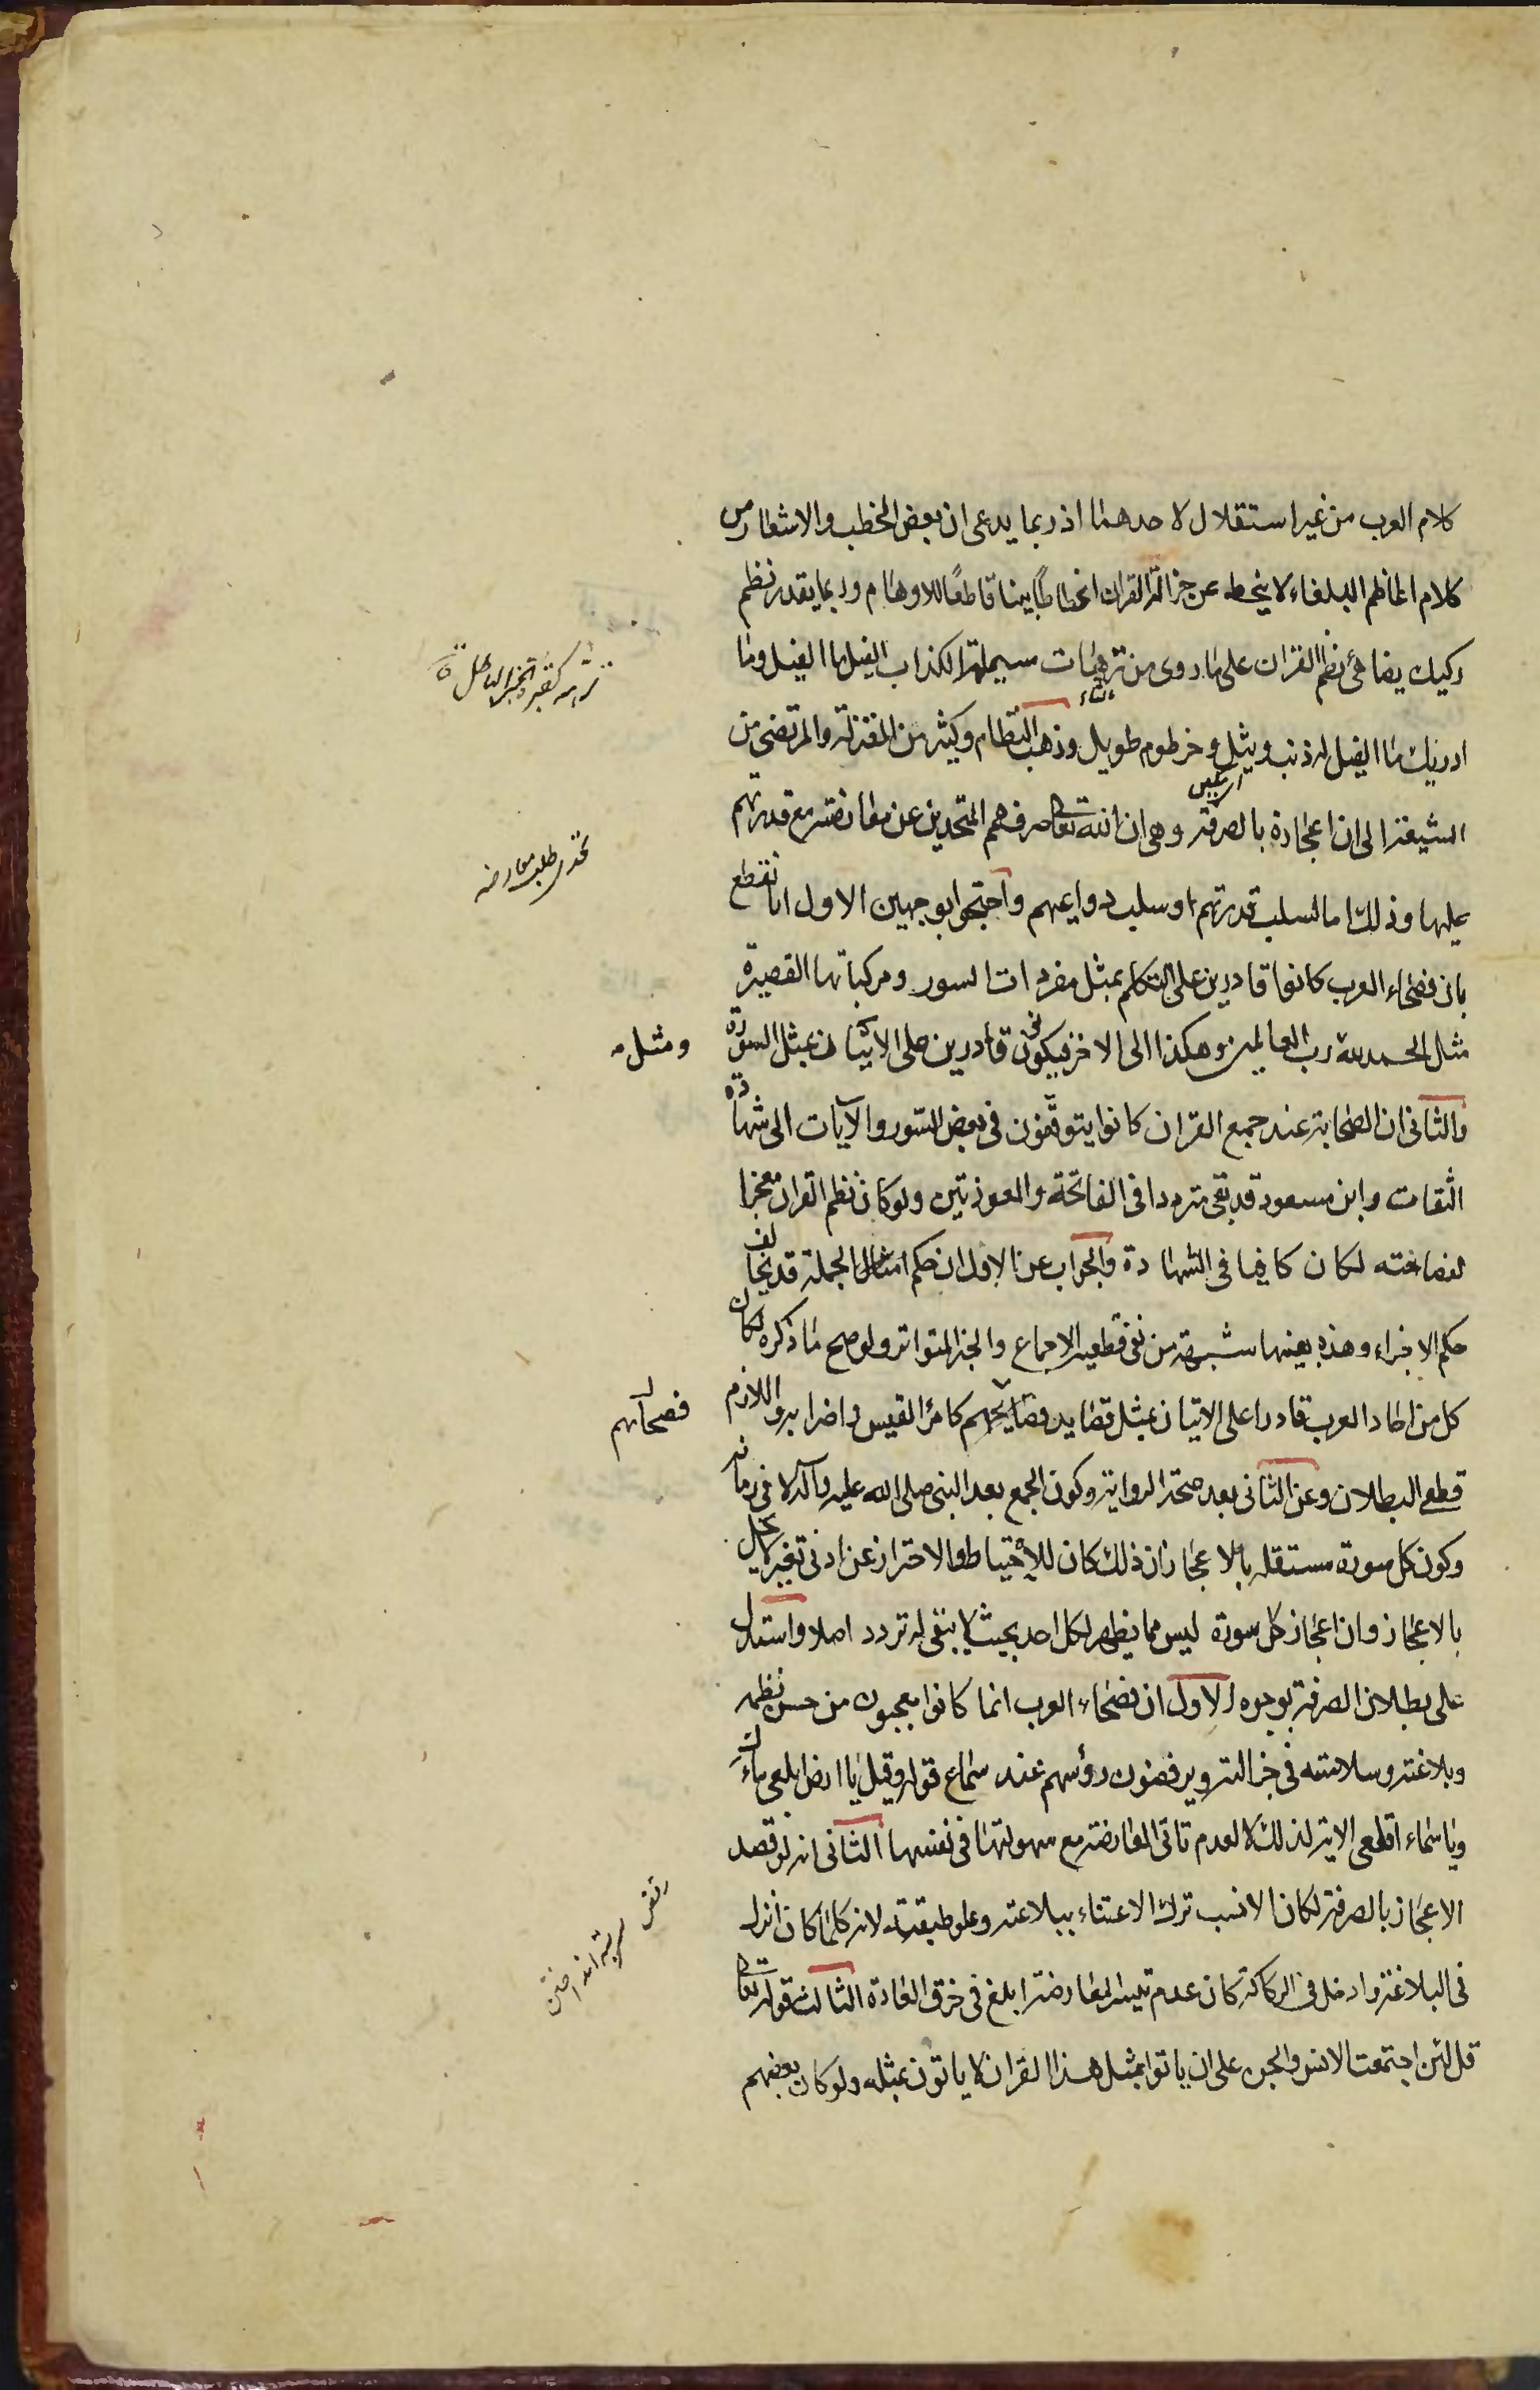 كلام العرب من غير استقلال لاحدهما اذ ربما يدعى ان بعض الخطب والاشعار من
كلام اعاظم البلغاء لا ينحط عن جزالة القران انحطاطًا بينا قاطعًا للاوهام وربما يقدر نظم
ركيك يضاهى نظم القران على ما روى من ترهات مسيلمة الكذاب الفيل ما الفيل وما
ادريك ما الفيل له ذنب وثيل وخرطوم طويل وذهب النظام وكثير من المعتزلة والمرتضى من
الشيعة الى ان اعجازه بالصرفة وهى ان الله تعالى صرف همم المتحدين عن معارضته مع قدرتهم
عليها وذلك اما لسلب قدرتهم او سلب دواعيهم واحتجوا بوجهين الاول انا نقطع
بان فصحاء العرب كانوا قادرين على التكلم بمثل مفردات السور ومركباتها القصيرة
مثل الحمد لله رب العالمين وهكذا الى الاخر فيكونون قادرين على الاتيان بمثل السورة
والثانى ان الصحابة عند جمع القران كانوا يتوقفون فى بعض السّور والآيات الى شهادة
الثقات وابن مسعود قد بقى مترددا فى الفاتحة والمعوذتين ولو كان نظم القران معجزا
لفصاحته لكان كافيا فى الشهادة والجواب عن الاول ان حكم امثال الجملة قد يخالف
حكم الاجزاء وهذه بعينها شبهة من نفى قطعية الاجماع والخبر المتواتر ولو صح ما ذكره لكان
كل من احاد العرب قادرا على الاتيان بمثل قصايد فصايحهم كامرؤ القيس واضرابه واللازم
قطع البطلان وعن الثانى بعد صحة الرواية وكون الجمع بعد النبى صلى الله عليه وآله لا فى زمانه
وكون كل سورة مستقله بالاعجاز ان ذلك كان للاحتياط والاحتراز عن ادنى تغيير لا يخل
بالاعجاز وان اعجاز كل سورة ليس مما يظهر لكل احد بحيث لا يبقى له تردد اصلا واستدل
على بطلان الصرفة بوجوه الاول ان فصحاء العرب انما كانوا يعجبون من حسن نظمه
وبلاغته وسلاسته فى جزالته ويرقصون رؤسهم عند سماع قوله وقيل يا ارض ابلعى ماءك
ويا سماء اقلعى الاية لذلك لا لعدم تاتى المعارضة مع سهولتها فى نفسها الثانى انه لو قصد
الاعجاز بالصرفة لكان الانسب ترك الاعتناء ببلاغته وعلو طبقته لانه كلما كان انزل
فى البلاغة وادخل فى الركاكة كان عدم تيسر المعارضة ابلغ فى خرق العادة الثالث قوله تعالى
قل لئن اجتمعت الانس والجن على ان ياتوا بمثل هذا القران لا ياتون بمثله ولو كان بعضهم
تحدى طلب معارضه
ومثل
فصحائهم